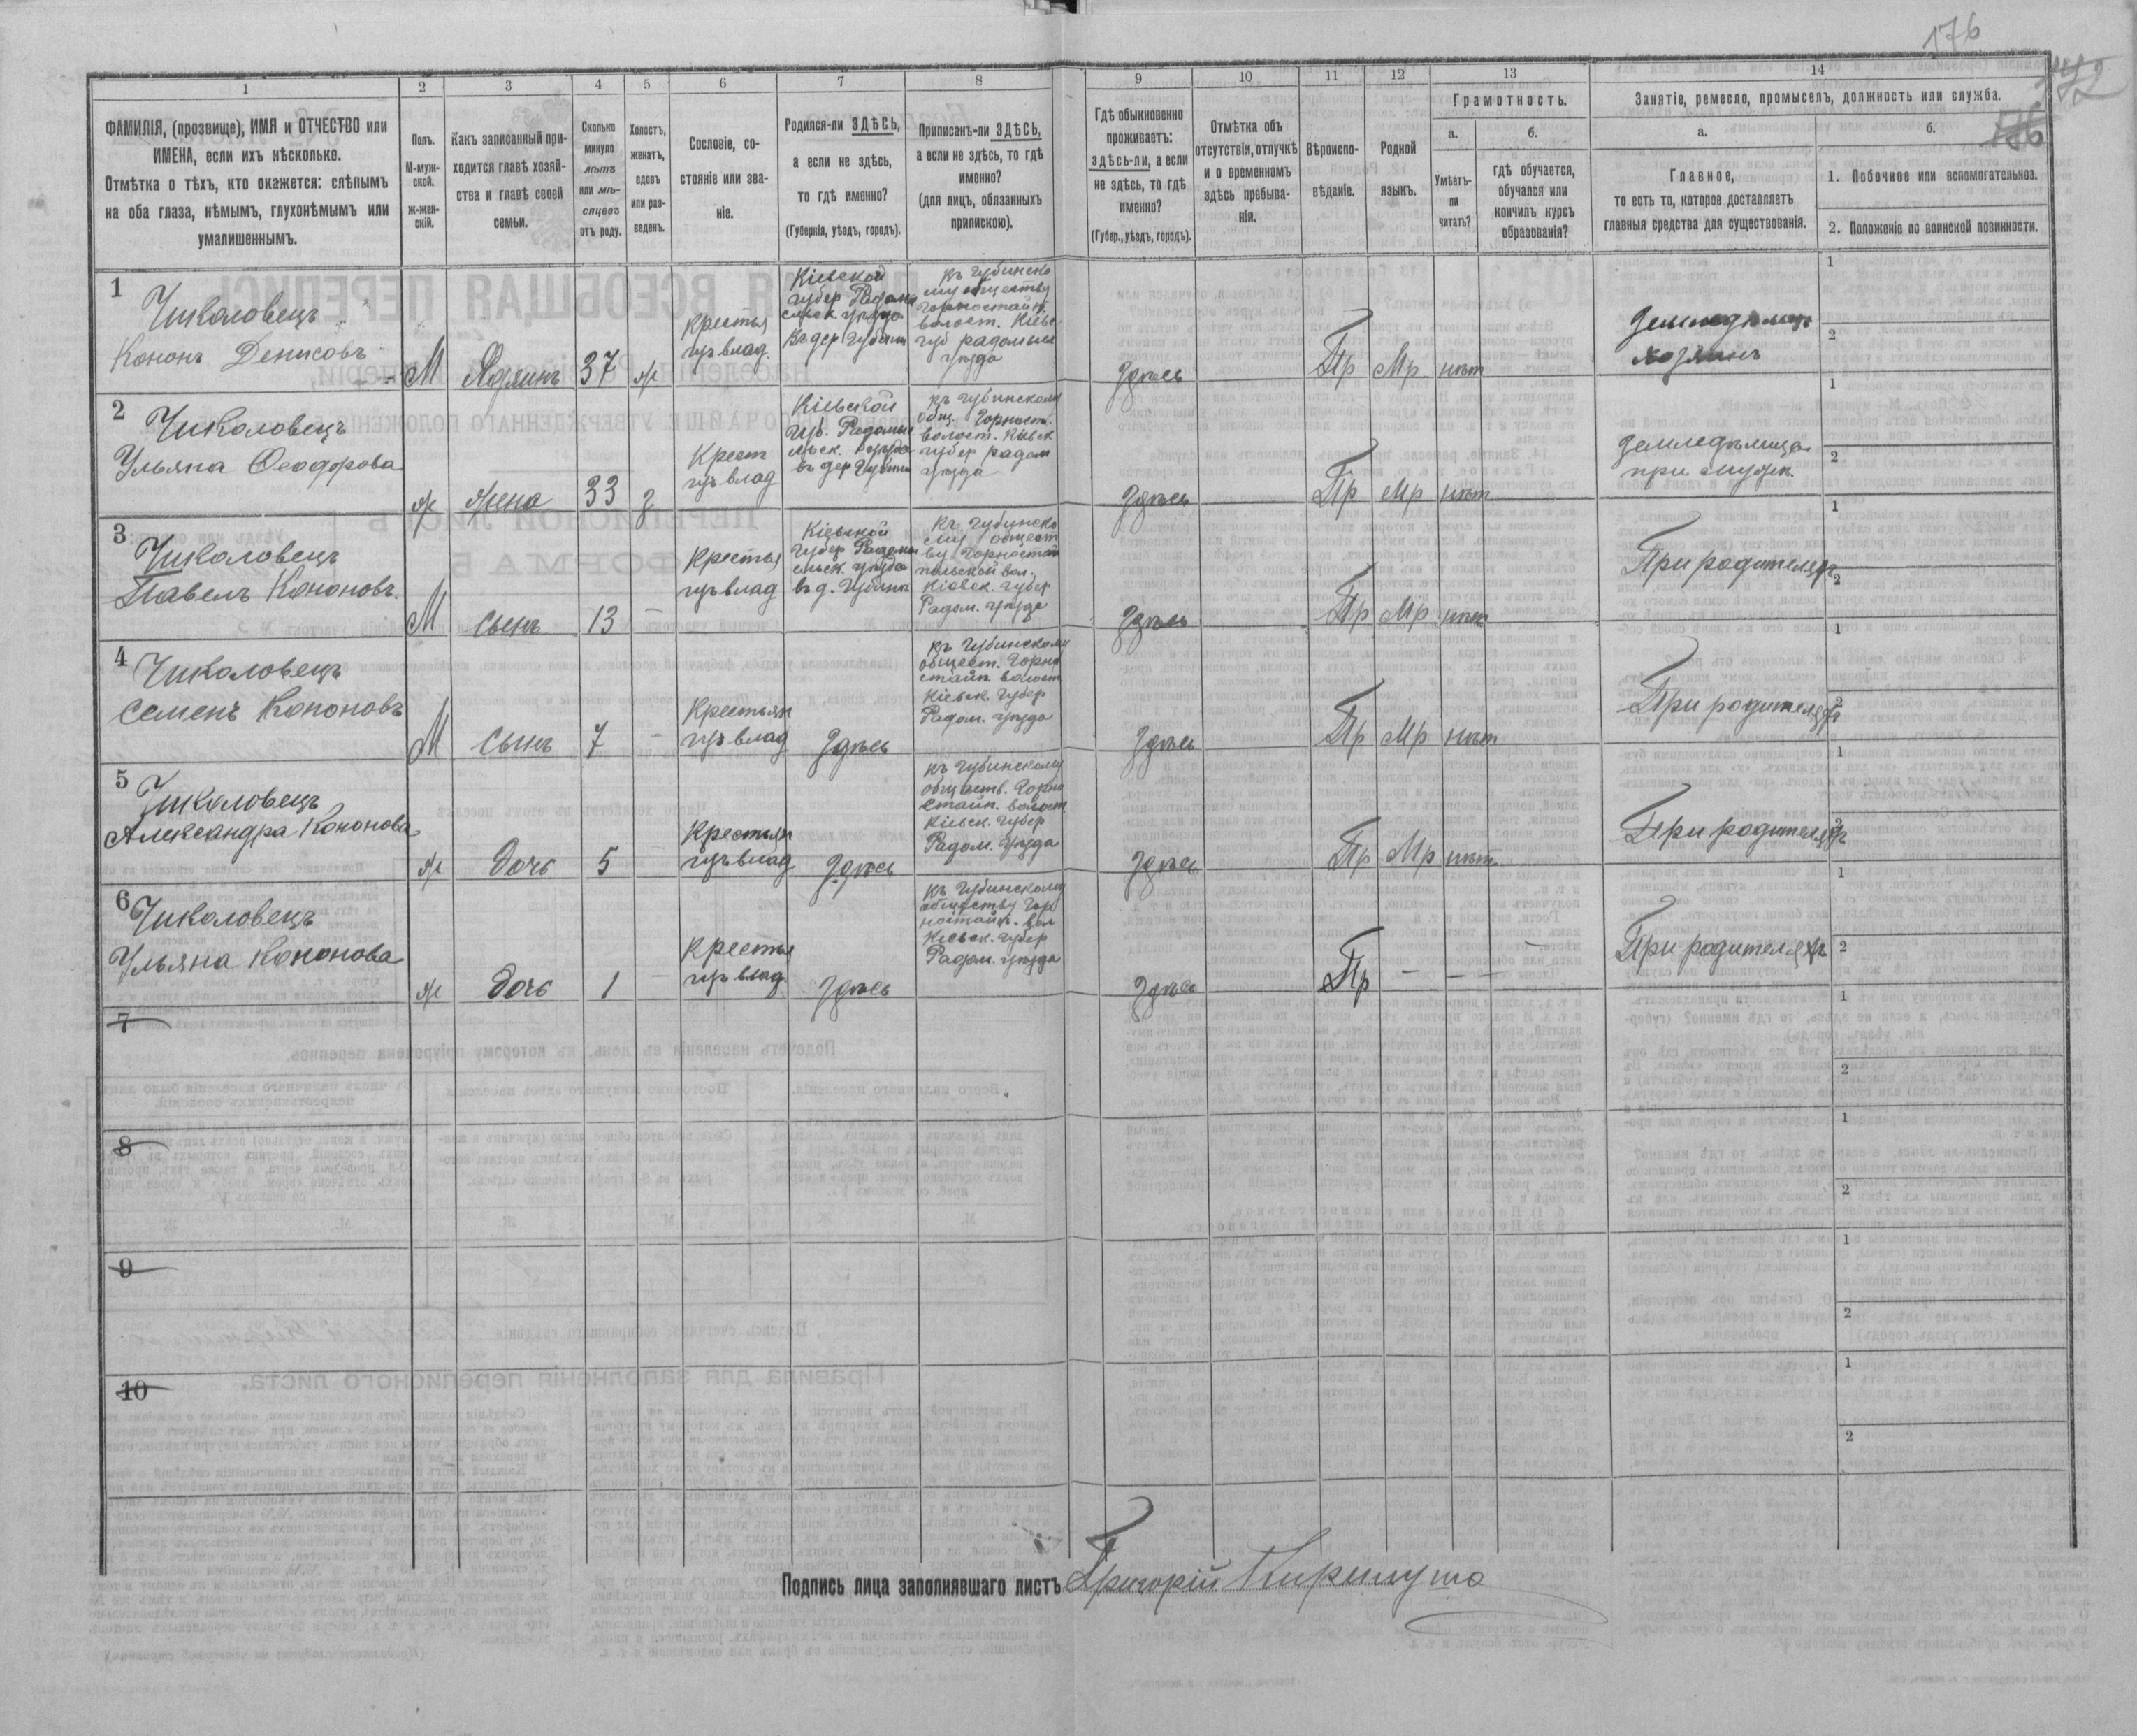 176
172
176
1
2
3
4
5
6
7
8
9
10
11
12
13
14
ФАМИЛІЯ, (прозвище), ИМЯ и ОТЧЕСТВО или
ИМЕНА, если ихъ нѣсколько.
Отмѣтка о тѣхъ, кто окажется: слѣпымъ
на оба глаза, нѣмымъ, глухонѣмымъ или
умалишеннымъ.
Полъ.
М-муж-
ской.
ж-жен-
скій.
Какъ записанный при-
ходится главѣ хозяй-
ства и главѣ своей
семьи.
Сколько
минуло
лѣтъ
или мѣ-
сяцевъ
отъ роду.
Холостъ,
женатъ,
вдовъ
или раз-
веденъ.
Сословіе, со-
стояніе или зва-
ніе.
Родился-ли ЗДѢСЬ,
а если не здѣсь,
то гдѣ именно?
(Губернія, уѣздъ, городъ).
Приписанъ-ли ЗДѢСЬ,
а если не здѣсь, то гдѣ
именно?
(для лицъ, обязанныхъ
припискою).
Гдѣ обыкновенно
проживаетъ:
здѣсь-ли, а если
не здѣсь, то гдѣ
именно?
(Губер., уѣздъ, городъ).
Отмѣтка объ
отсутствіи, отлучкѣ
и о временномъ
здѣсь пребыва-
ніи.
Вѣроиспо-
вѣданіе.
Родной
языкъ.
Грамотность.
а.
Умѣетъ-
ли
читать?
б.
гдѣ обучается,
обучался или
кончилъ курсъ
образованія?
Занятіе, ремесло, промыселъ, должность или служба.
а.
Главное,
то есть то, которое доставляетъ
главныя средства для существованія.
б.
1. Побочное или вспомогательное.
2. Положеніе по воинской повинности.
1
Чиколовецъ
Кононъ Денисовъ
М
Хозяинъ
37
ж
Крестья
изъ влад.
Кіевской
губер Радомы
сльск. уѣзда
Въ дер Губинѣ
Къ Губинско
му обществу
Горностайп.
волост. Кіевс
губ радомысл
уѣзда
Здѣсь
Пр
Мр
нѣт
Земледѣлецъ
хозяинъ
1
2
2
Чиколовецъ
Ульяна Феодорова
ж
Жена
33
з
Крест
изъ влад
Кіевской
Губ. Радомы
сльск. уѣзда
въ дер Губинѣ
Къ Губинскому
общ. Горност.
волост. Кіевск
губер радом
уѣзда
Здѣсь
Пр
Мр
нѣт
Земледѣлица
при мужѣ.
1
2
3
Чиколовецъ
Павелъ Кононовъ.
М
Сынъ
13
—
Крестья
изъ влад
Кіевской
Губер Радомы
сльск. уѣзда
въ д. Губинѣ
Къ Губинско
му общест
ву Горностай
польской вол.
Кіевск. губер
Радом. уѣзда
Здѣсь
Пр
Мр
нѣт
При родителяхъ
1
2
4
Чиколовецъ
Семенъ Кононовъ
М
Сынъ
7
—
Крестьян
изъ влад
Здѣсь
Къ Губинскому
общест. Горно
стайп. волост
Кіевск. Губер
Радом. уѣзда
Здѣсь
Пр
Мр
нѣт
При родителяхъ
1
2
5
Чиколовецъ
Александра Кононова
ж
Дочь
5
Крестьян
изъ влад
Здѣсь
Къ Губинскому
обществ. Горно
стайп. волост
Кіевск. Губер
Радом. уѣзда
Здѣсь
Пр
Мр
нѣт
При родителяхъ
1
2
6
Чиколовецъ
Ульяна Кононова
ж
Дочь
1
—
Крестья
изъ влад.
Здѣсь
Къ Губинскому
обществу Гор
ностайп. вол
Кіевск. Губер
Радом. уѣзда
Здѣсь
Пр
—
—
—
При родителяхъ
1
2
7
1
2
8
1
2
9
1
2
10
1
2
Подпись лица заполнявшаго листъ Григорій